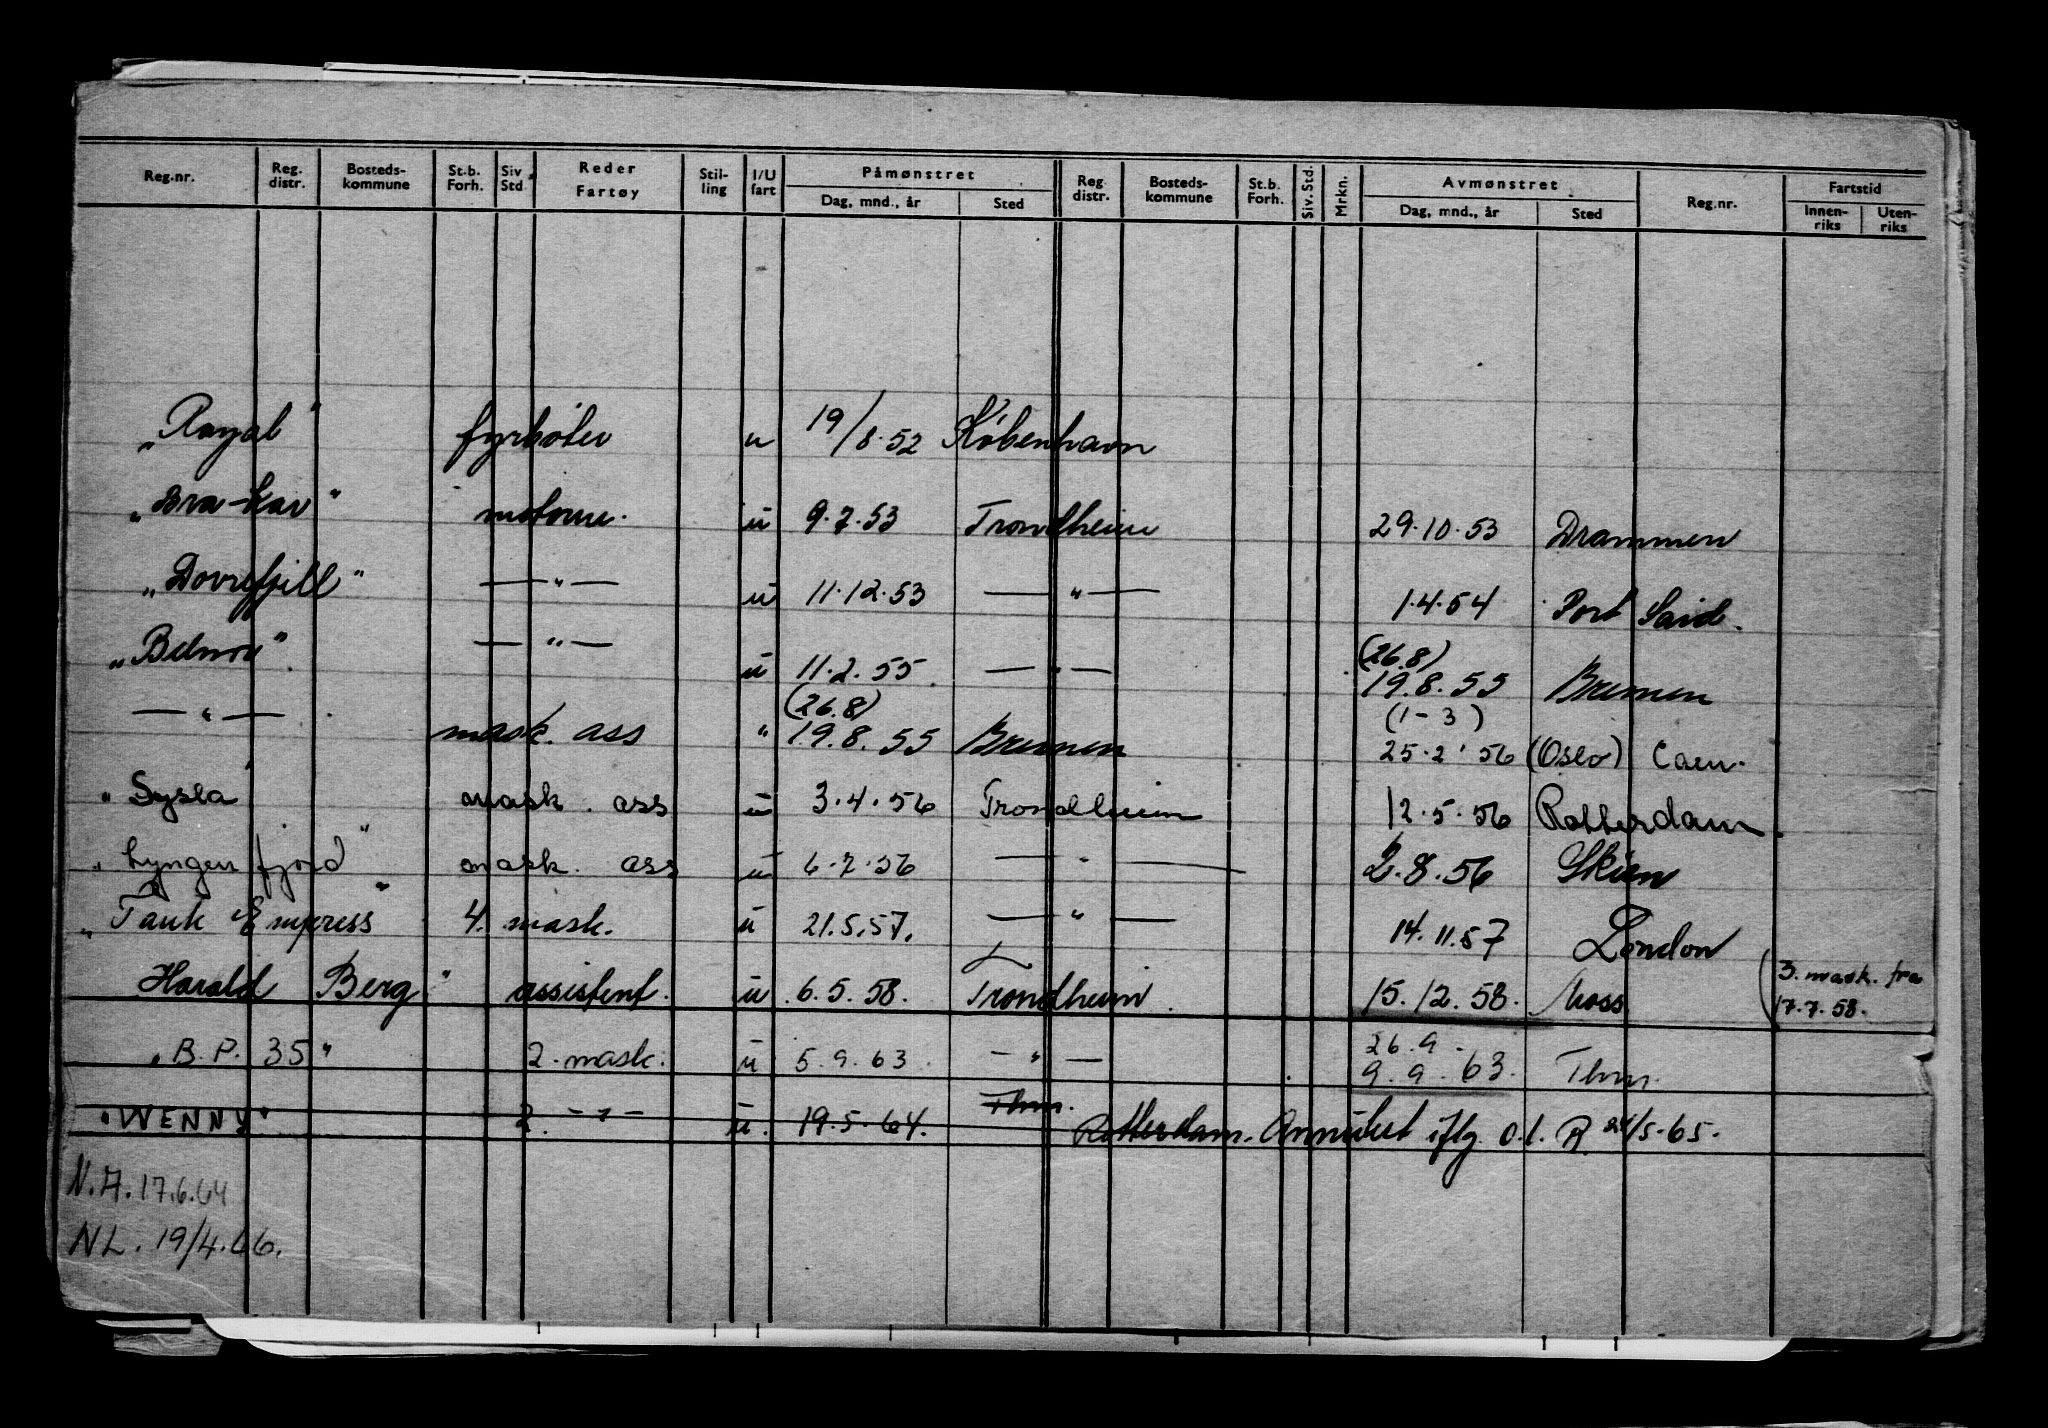 Reg.nr. Reg. distr. Bosteds-kommune St.b. Forh. Siv Std. Reder Fartøy Stil-ling I/U fart Påmønstret Dag, mnd., år Sted Reg distr. Bosteds-kommune St.b. Forh. Siv. Std. Mrkn. Avmønstret Dag, mnd., år Sted Reg.nr. Fartstid Innen-riks Uten-riks
„Royal" fyrbøter u 19/8.52 København
„Bra-Kar" motorm. u 9.7.53 Trondheim 29.10.53 Drammen
„Dovrefjell" — " — u 11.12.53 — " — 1.4.54 Port Said.
„Belnor" — " — u 11.2.55. — " — (26.8) 19.8.55 Bremen
— " — mask. ass " (26.8) 19.8.55 Bremen (1-3) 25.2.56 (Oslo) Caen.
„Sysla mask. ass u 3.4.56 Trondheim 12.5.56 Rotterdam.
„Lyngenfjord" mask. ass u 6.7.56 — " — 2.8.56 Skien
„Tank Empress" 4. mask. u 21.5.57. — " — 14.11.57 London
Harald Berg" assistent. u 6.5.58. Trondheim. 15.12.58. Moss (3. mask. fra 17.7.58.
„B.P. 35" 2. mask. u 5.9.63. — " — 26.9. 9.9.63. Thm.
"WENNY" 2. — " — u. 19.5.64. Thm. Rotterdam. Annulert iflg o.l. R 24/5.65.
N.A. 17.6.64
NL. 19/4.66.